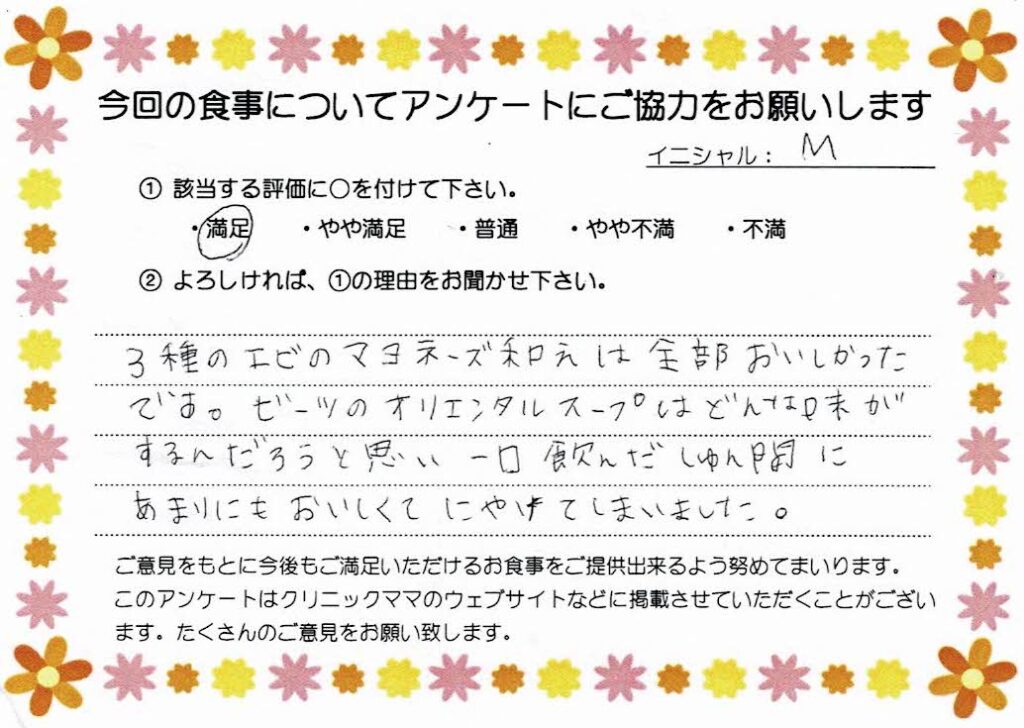 今回の食事についてアンケートにご協力をお願いします
イニシャル： M
① 該当する評価に○を付けて下さい。
・満足 ・やや満足 ・普通 ・やや不満 ・不満
② よろしければ、①の理由をお聞かせ下さい。
3種のエビのマヨネーズ和えは全部おいしかった
です。ビーツのオリエンタルスープはどんな味が
するんだろうと思い一口飲んだしゅん間に
あまりにもおいしくてにやけてしまいました。
ご意見をもとに今後もご満足いただけるお食事をご提供出来るよう努めてまいります。
このアンケートはクリニックママのウェブサイトなどに掲載させていただくことがござい
ます。たくさんのご意見をお願い致します。